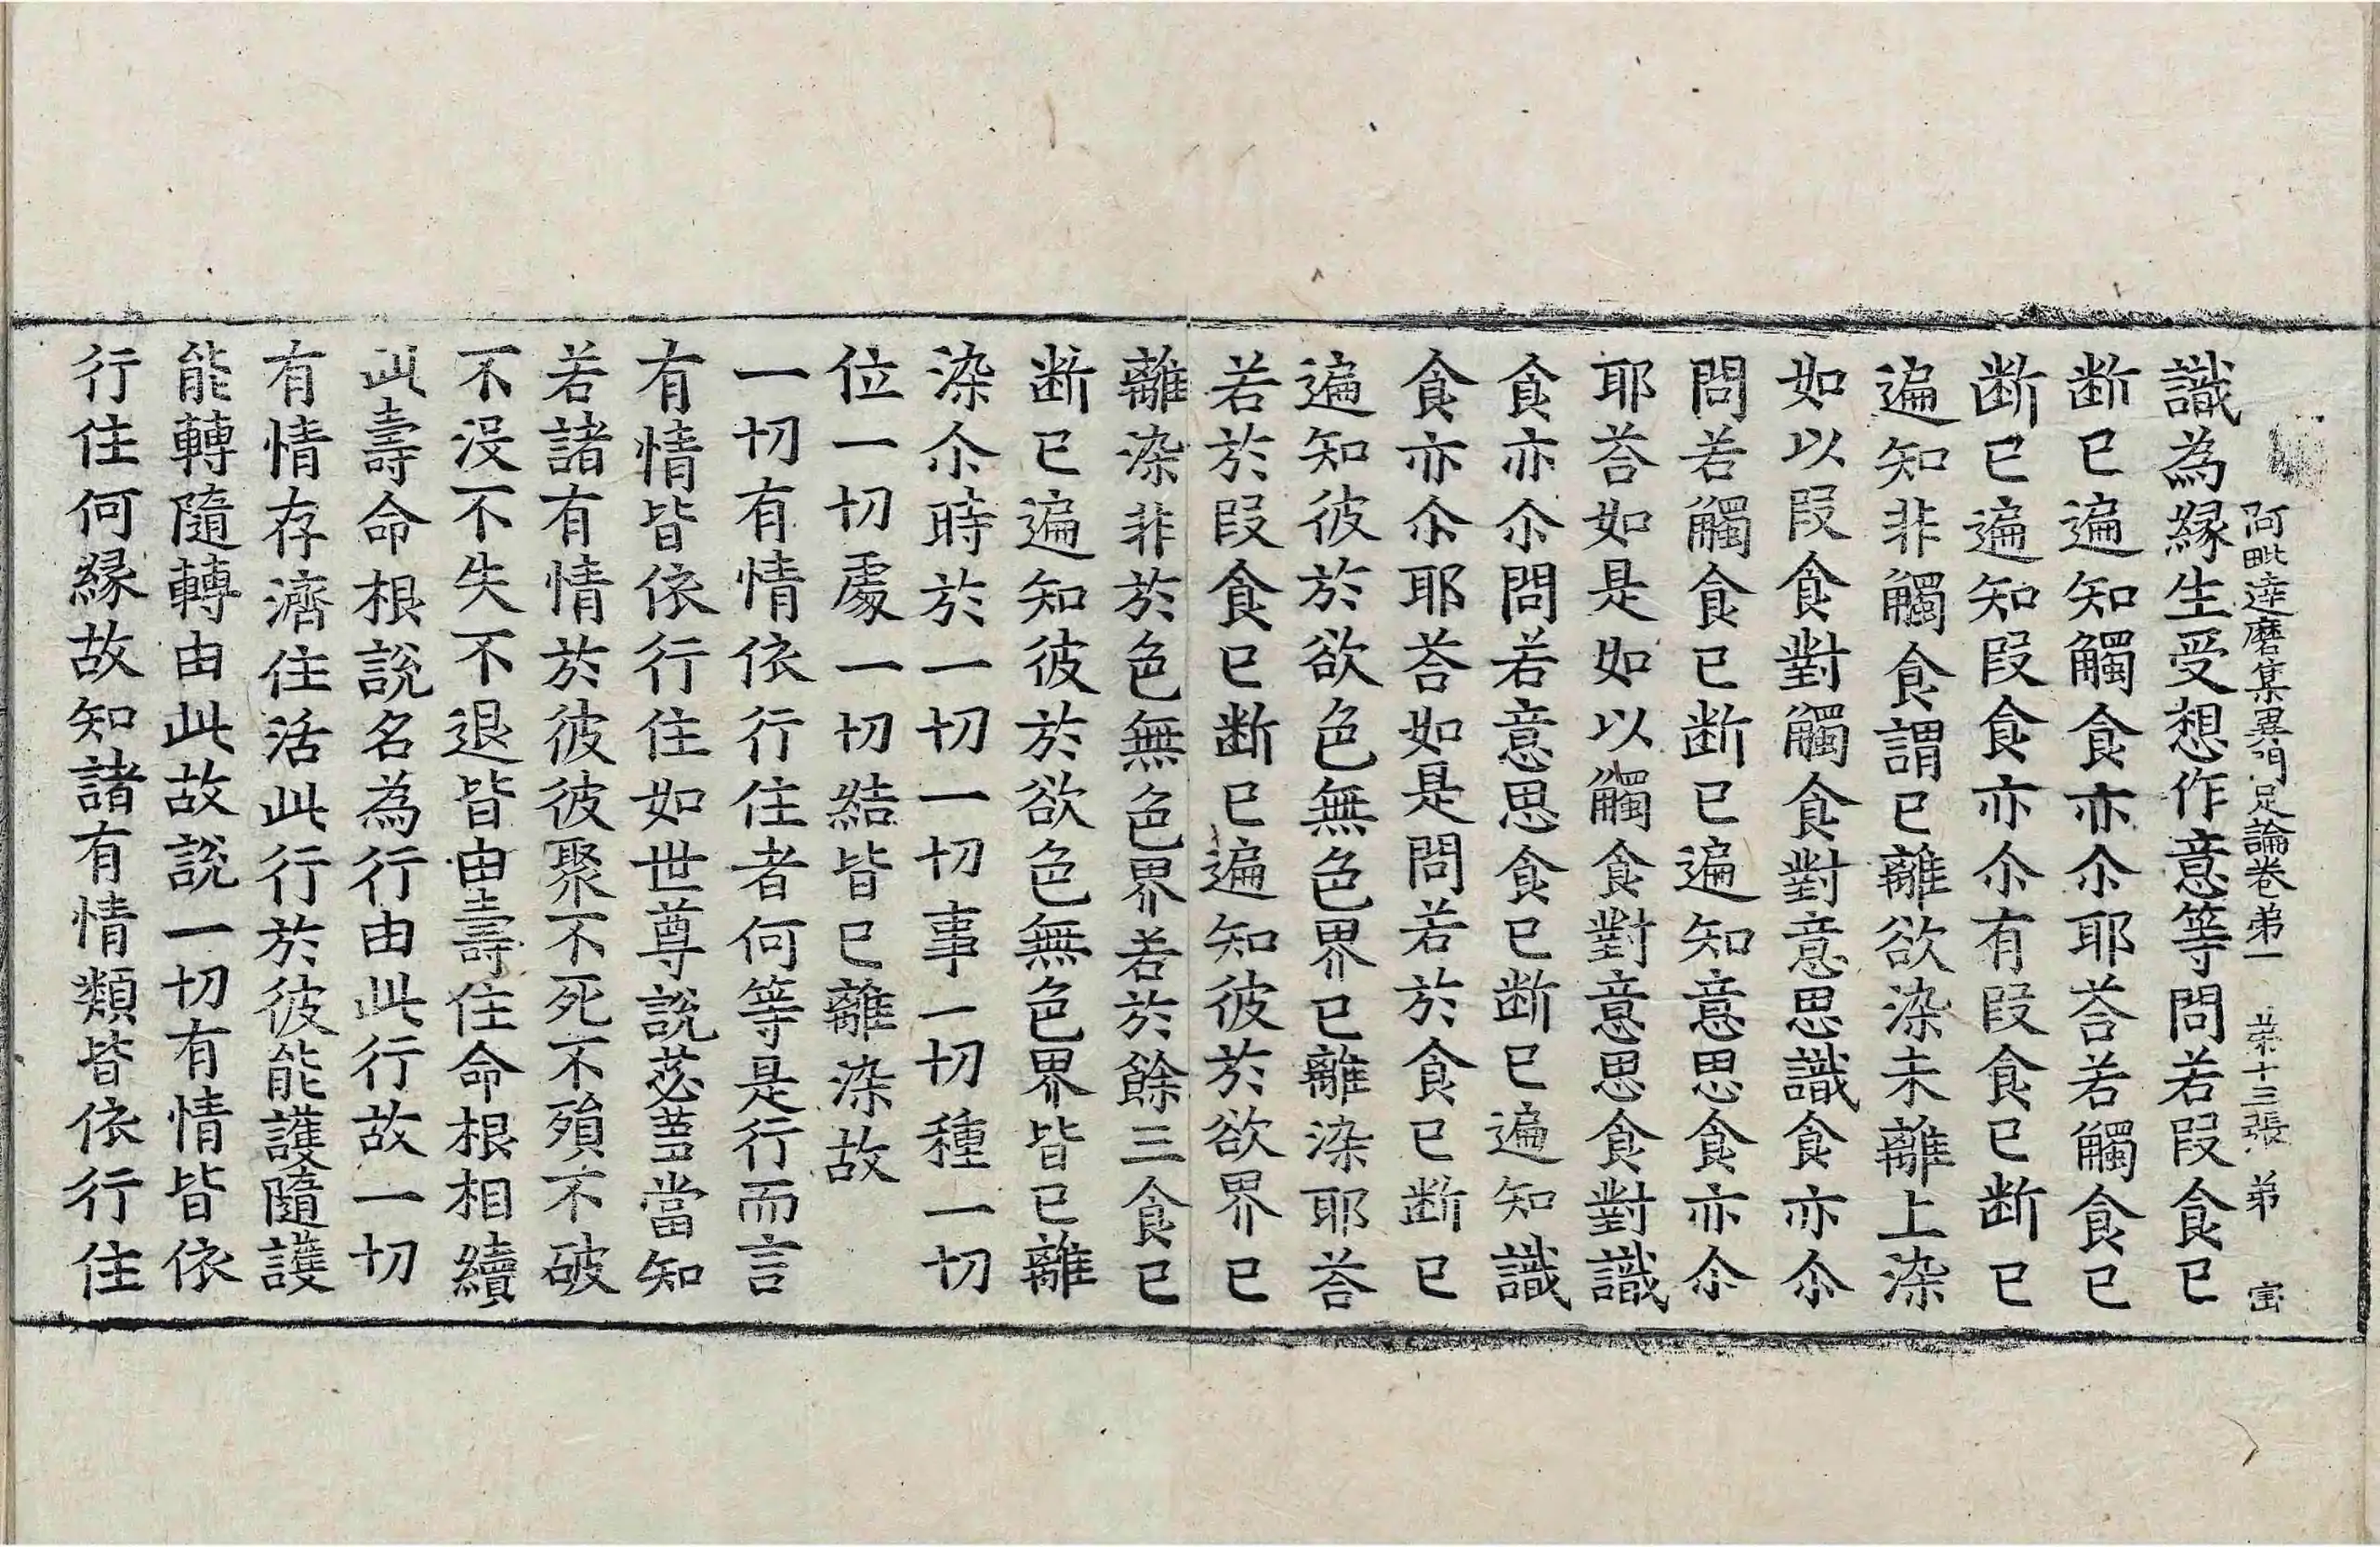 阿毗達磨集異門足論卷苐一 苐十三張 苐
識為緣生受想作意等問若段食已
断已遍知觸食亦尒耶荅若觸食已
断已遍知段食亦尒有段食已断已
遍知非觸食謂已離欲染未離上染
如以段食對觸食對意思識食亦尒
問若觸食已断已遍知意思食亦尒
耶荅如是如以觸食對意思食對識
食亦尒問若意思食已断已遍知識
食亦尒耶荅如是問若於食已断已
遍知彼於欲色無色界已離染耶荅
若於段食已断已遍知彼於欲界已
離染非於色無色界若於餘三食已
断已遍知彼於欲色無色界皆已離
染尒時於一切一切事一切種一切
位一切處一切結皆已離染故
一切有情依行住者何等是行而言
有情皆依行住如世尊說苾蒭當知
若諸有情於彼彼聚不死不殞不破
不没不失不退皆由壽住命根相續
此壽命根說名為行由此行故一切
有情存濟住活此行於彼能護隨護
能轉隨轉由此故說一切有情皆依
行住何緣故知諸有情類皆依行住